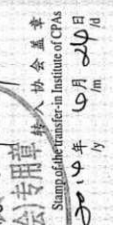 会)专用章
转入协会盖章
Stamp of the transfer-in Institute of CPAs
2014年 6月 24日
/y /m /d